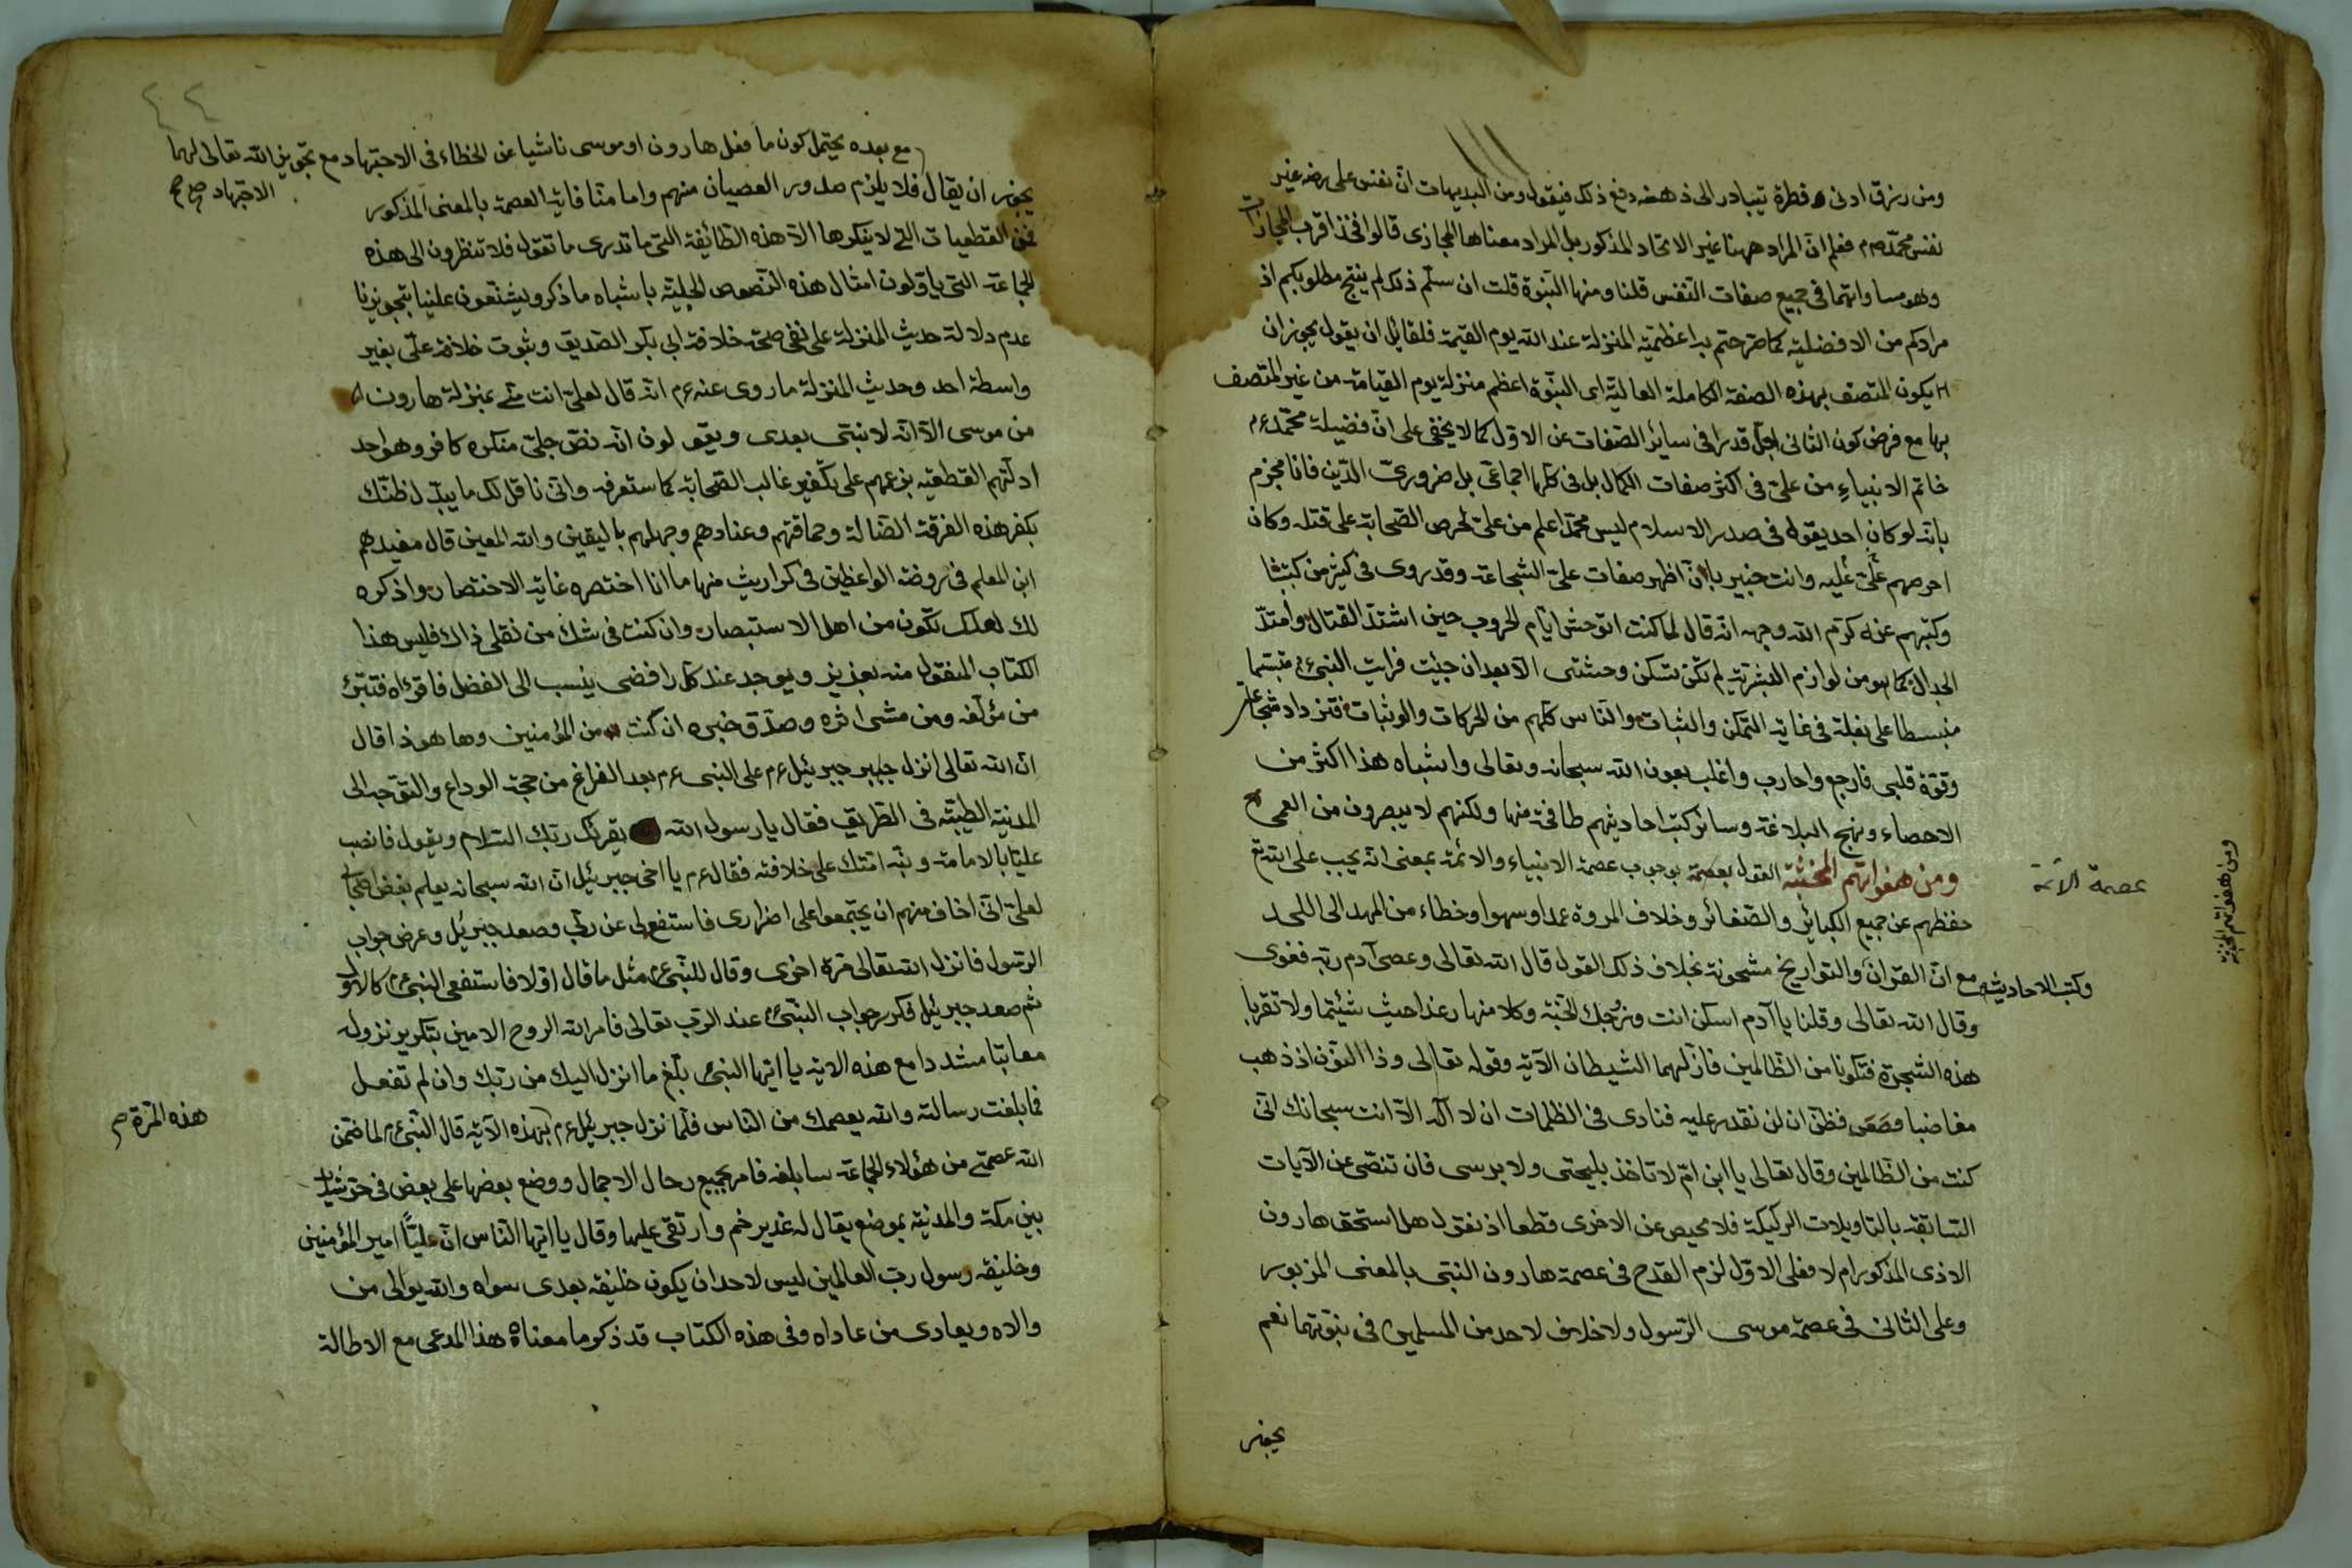 ومن رزق ادنى فطرة يتبادر الى ذهنه دفع ذلك فيقول ومن البديهات ان نفس على رضه غير
نفس محمد صم فعلم ان المراد ههنا غير الاتحاد المذكور بل المراد معناها المجازى قالوا فخذ اقرب المجازات
وهو مساواتهما فى جميع صفات النفس قلنا ومنها النبوة قلت ان سلم ذلك لم ينتج مطلوبكم اذ
مرادكم من الافضلية كما صرحتم به اعظمية المنزلة عند الله يوم القيمة فلقائل ان يقول يجوز ان
يكون المتصف بهذه الصفة الكاملة العالية اى النبوة اعظم منزلة يوم القيامة من غير المتصف
بها مع فرض كون الثانى اجل قدرا فى سائر الصفات عن الاول كما لا يخفى على ان فضيلة محمد عم
خاتم الانبياء من على فى اكثر صفات الكمال بل فى كلها اجماعى بل ضرورى الدين فانا نجزم
بانه لو كان احد يقول فى صدر الاسلام ليس محمد اعلم من على لحرص الصحابة على قتله وكان
احرصهم على عليه وانت خبير بان اظهر صفات على الشجاعة وقد روى فى كثير من كتبنا
وكتبهم عنه كرم الله وجهه انه قال لما كنت اتوحش ايام الحروب حين اشتد القتال وامتد
الجدال كما هو من لوازم البشرية لم تكن تسكن وحشتى الا بعد ان جئت فرايت النبى عم متبسما
منبسطا على بغلة فى غاية التمكن والثبات والناس كلهم من الحركات والوثبات فتزداد شجاعتى
وقوة قلبى فارجع واحارب واغلب بعون الله سبحانه وتعالى واشباه هذا اكثر من
الاحصاء ونهج البلاغة وسائر كتب احاديثهم طافحة منها ولكنهم لا يبصرون من العمى
ومن هفواتهم المخنثة القول بعصمة بوجوب عصمة الانبياء والائمة بمعنى انه يجب على الله تع
عصمة الائمة
ومن هفواتهم المخنثة
حفظهم عن جميع الكبائر والصغائر وخلاف المروة عمدا وسهوا وخطاء من المهد الى اللحد
وكتب الاحاديث صح مع ان القران والتواريخ مشحونة بخلاف ذلك القول قال الله تعالى وعصى آدم ربه فغوى
وقال الله تعالى وقلنا يا آدم اسكن انت وزوجك الجنة وكلا منها رغدا حيث شئتما ولا تقربا
هذه الشجرة فتكونا من الظالمين فازلهما الشيطان الآية وقوله تعالى وذا النون اذ ذهب
مغاضبا فظن ان لن نقدر عليه فنادى فى الظلمات ان لا اله الا انت سبحانك انى
كنت من الظالمين وقال تعالى يا ابن ام لا تاخذ بلحيتى ولا براسى فان تنصى عن الآيات
السابقة بالتاويلات الركيكة فلا محيص عن الاخرى قطعا اذ نقول هل استحق هارون
الاذى المذكور ام لا فعلى الاول لزم القدح فى عصمة هارون النبى بالمعنى المزبور
وعلى الثانى فى عصمة موسى الرسول ولا خلاف لاحد من المسلمين فى نبوتهما نعم
يجوز
مع بعده يحتمل كون ما فعل هارون او موسى ناشيا عن الخطاء فى الاجتهاد مع تجويز الله تعالى لهما
الاجتهاد صح
يجوز ان يقال فلا يلزم صدور العصيان منهم واما منافاة العصمة بالمعنى المذكور
فمن القطعيات التى لا ينكرها الا هذه الطائفة التى ما تدرى ما تقول فلا تنظرون الى هذه
الجماعة التى ياولون امثال هذه النصوص الجلية باشباه ما ذكر ويشنعون علينا بتجويزنا
عدم دلالة حديث المنزلة على نفى صحة خلافة ابى بكر الصديق وثبوت خلافة على بغير
واسطة احد وحديث المنزلة ما روى عنه عم انه قال لعلى انت منى بمنزلة هارون
من موسى الا انه لا نبى بعدى ويقولون انه نص جلى منكره كافر وهو احد
ادلتهم القطعية بزعمهم على تكفير غالب الصحابة كما ستعرفه وانى ناقل لك ما يبدل ظنك
بكفر هذه الفرقة الضالة وحماقتهم وعنادهم وجهلهم باليقين والله المعين قال مفيدهم
ابن المعلم فى روضة الواعظين فى كواريث منها ما انا اختصره غاية الاختصار واذكره
لك لعلك تكون من اهل الاستبصار وان كنت فى شك من نقلى ذاك فليس هذا
الكتاب المنقول منه بعزيز ويوجد عند كل رافضى ينسب الى الفضل فاقرءاه فتبرئ
من مؤلفه ومن مشى اثره وصدق خبره ان كنت من المؤمنين وها هو ذا قال
ان الله تعالى انزل جبرئيل عم على النبى عم بعد الفراغ من حجة الوداع والتوجه الى
المدينة الطيبة فى الطريق فقال يا رسول الله يقرئك ربك السلام ويقول فانصب
عليا بالامامة ونبه امتك على خلافته فقال عم يا اخى جبرئيل ان الله سبحانه يعلم بغض اصحابى
لعلى انى اخاف منهم ان يجتمعوا على اضرارى فاستعف لى عن ربى وصعد جبرئيل وعرض جواب
الرسول فانزل الله تعالى مرة اخرى وقال للنبى عم مثل ما قال اولا فاستعفى النبى عم كالاول
ثم صعد جبرئيل فكرر جواب النبى عند الرب تعالى فامر الله الروح الامين بتكرير نزوله
معاتبا مشددا مع هذه الاية يا ايها النبى بلغ ما انزل اليك من ربك وان لم تفعل
فما بلغت رسالته والله يعصمك من الناس فلما نزل جبرئيل عم بهذه الآية قال النبى عم لما ضمن
هذه المرة صح
الله عصمتى من هؤلاء الجماعة سابلغه فامر بجميع رحال الاجمال ووضع بعضها على بعض فى حر شديد
بين مكة والمدينة بموضع يقال له غدير خم وارتقى عليها وقال يا ايها الناس ان عليا امير المؤمنين
وخليفة رسول رب العالمين ليس لاحد ان يكون خليفة بعدى سواه والله يوالى من
والاه ويعادى من عاداه وفى هذه الكتاب قد ذكر ما معناه هذا المدعى مع الاطالة